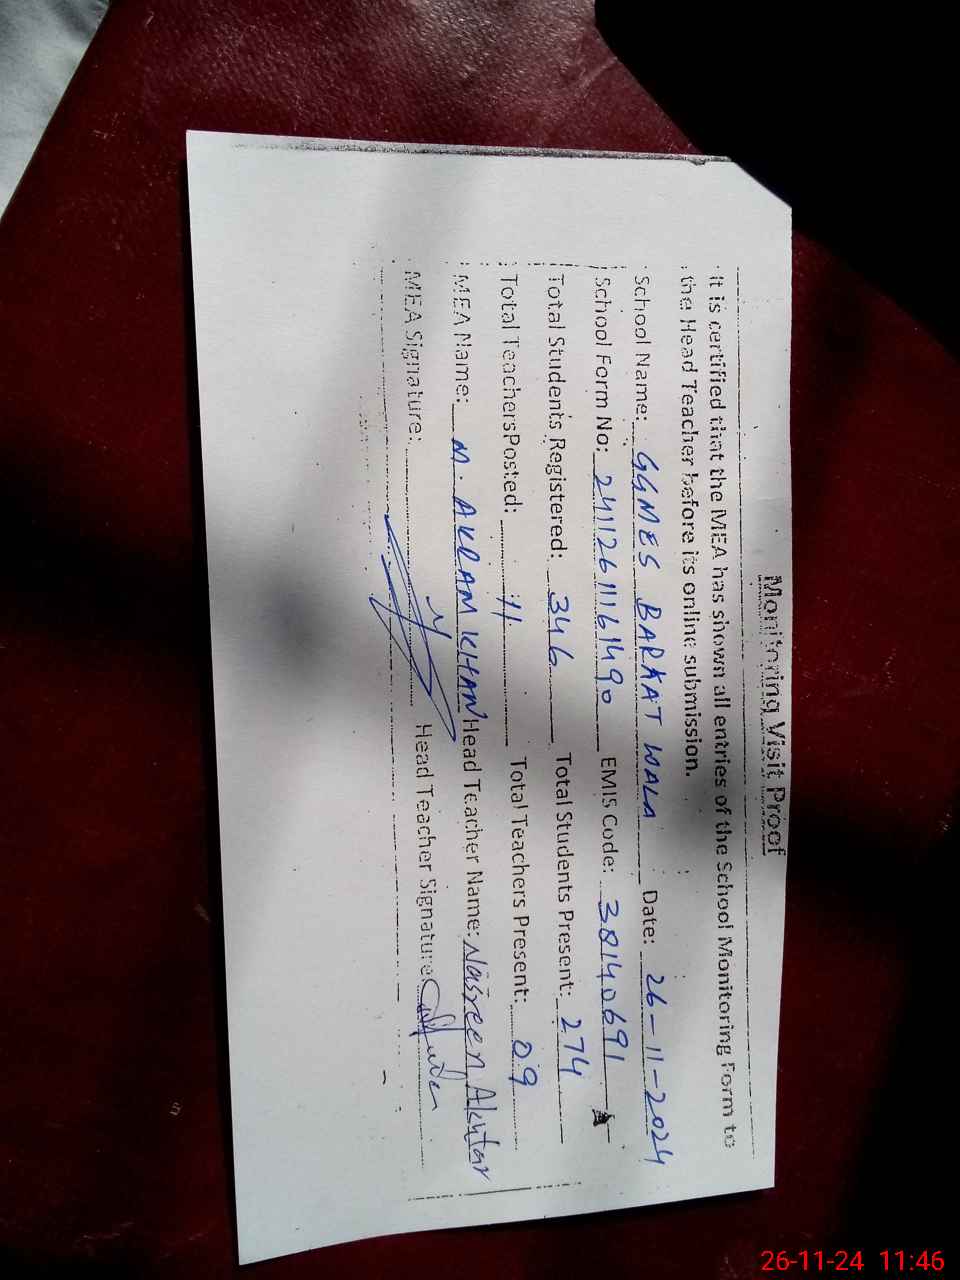 Monitoring Visit Proof
It is certified that the MEA has shown all entries of the School Monitoring Form to
the Head Teacher before its online submission.
School Name: GGMES BARAAT WALA Date: 26-11-2024
School Form No: 2411261161490 EMIS Code: 38140691
Total Students Registered: 346 Total Students Present: 274
Total TeachersPosted: 11 Total Teachers Present: 09
MEA Name: M. AKRAM KHAN Head Teacher Name: Nasreen Akhtar
MEA Signature: Head Teacher Signature:
26-11-24 11:46